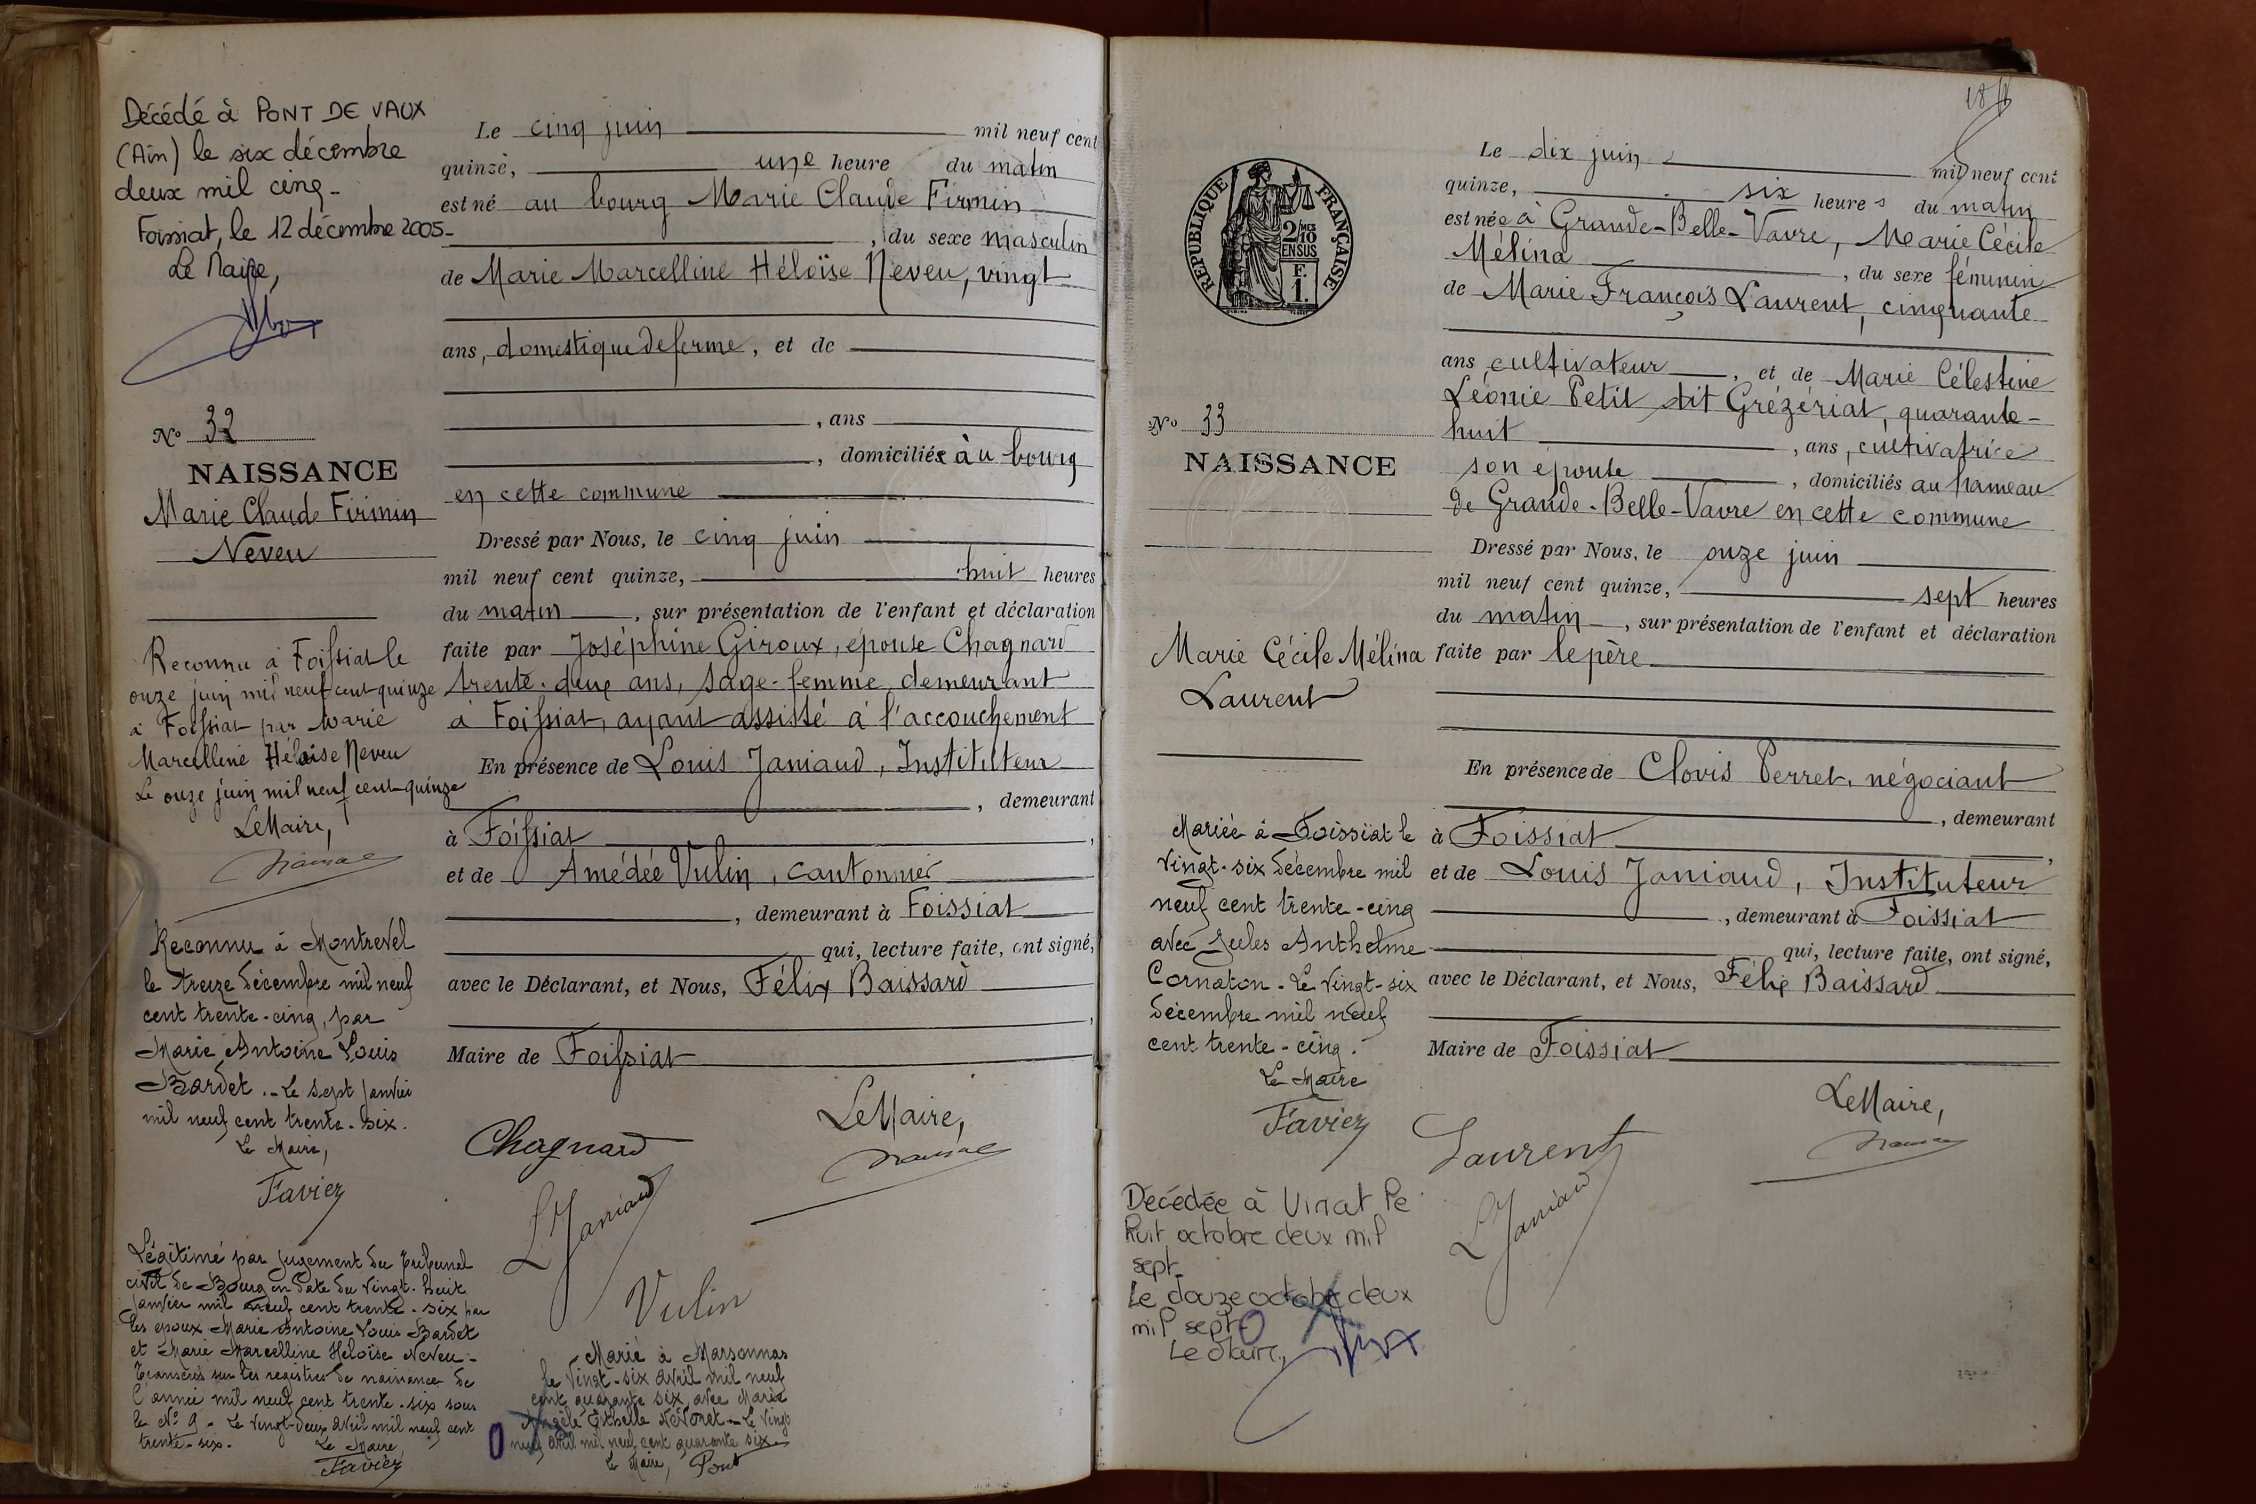 Décédé à PONT DE VAUX
(Ain) le six décembre
deux mil cinq-
Foissiat, le 12 décembre 2005-
Le Maire,
No 32
NAISSANCE
Marie Claude Firmin
Neveu
Reconnu à Foissiat le
onze juin mil neuf cent quinze
à Foissiat par Marie
Marcelline Héloïse Neveu
Le onze juin mil neuf cent quinze
Le Maire,
Reconnu à Montrevel
le treize décembre mil neuf
cent trente-cinq, par
Marie Antoine Louis
Bardet.- Le sept janvier
mil neuf cent trente-six.
Le Maire,
Favier
Légitimé par jugement du tribunal
civil de Bourg en date du vingt-huit
janvier mil neuf cent trente-six par
les époux Marie Antoine Louis Bardet
et Marie Marcelline Héloïse Neveu-
Transcris sur les registres de naissances de
l'année mil neuf cent trente-six sous
le No 9 - Le vingt-deux avril mil neuf cent
trente-six.
Le Maire,
Favier
Le cinq juin mil neuf cent
quinze, une heure du matin
est né au bourg Marie Claude Firmin
, du sexe masculin
de Marie Marcelline Héloïse Neveu, vingt
ans, domestique de ferme, et de
, ans
, domiciliée au bourg
en cette commune
Dressé par Nous, le cinq juin
mil neuf cent quinze, huit heures
du matin, sur présentation de l'enfant et déclaration
faite par Joséphine Giroux, épouse Chagnard
trente-deux ans, sage-femme, demeurant
à Foissiat, ayant assisté à l'accouchement
En présence de Louis Janiaud, Instituteur
, demeurant
à Foissiat,
et de Amédée Vulin, cantonnier
, demeurant à Foissiat
qui, lecture faite, ont signé,
avec le Déclarant, et Nous, Félix Baissard
,
Maire de Foissiat
Le Maire,
Chagnard
L Janiaud
Vulin
Marié à Marsonnas
le vingt-six avril mil neuf
cent quarante six, avec Marie
Angèle Thelle Nevoret - Le vingt
neuf avril mil neuf cent quarante six.-
Le Maire, Pont
18
RÉPUBLIQUE FRANÇAISE
2/10 MES
EN SUS
F.
1.
No 33
NAISSANCE
Marie Cécile Mélina
Laurent
Mariée à Foissiat le
vingt-six décembre mil
neuf cent trente-cinq
avec Jules Anthelme
Cornaton - Le vingt-six
décembre mil neuf
cent trente-cinq.
Le Maire
Favier
Décédée à Viriat le
huit octobre deux mil
sept-
Le douze octobre deux
mil sept
Le Maire,
Le dix juin mil neuf cent
quinze, six heures du matin
est née à Grande-Belle-Vavre, Marie Cécile
Mélina, du sexe féminin
de Marie François Laurent, cinquante
ans, cultivateur, et de Marie Célestine
Léonie Petit dit Grézériat, quarante-
huit, ans, cultivatrice
son épouse, domiciliés au hameau
de Grande-Belle-Vavre en cette commune
Dressé par Nous, le onze juin
mil neuf cent quinze, sept heures
du matin, sur présentation de l'enfant et déclaration
faite par le père
En présence de Clovis Perret, négociant
, demeurant
à Foissiat,
et de Louis Janiaud, Instituteur
, demeurant à Foissiat
qui, lecture faite, ont signé,
avec le Déclarant, et Nous, Félix Baissard
Maire de Foissiat
Le Maire,
Laurent
L Janiaud